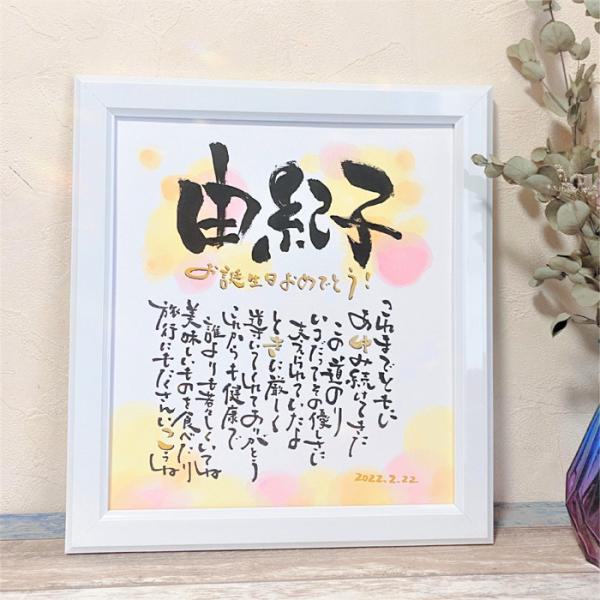 由紀子
お誕生日おめでとう!
これまでともに
あゆみ続けてきた
この道のり
いつだってその優しさに
支えられていたよ
ときに厳しく
導いてくれてありがとう
これからも健康で
誰よりも若々しくいてね
美味しいものを食べたり
旅行にもたくさんいこうね
2022.2.22